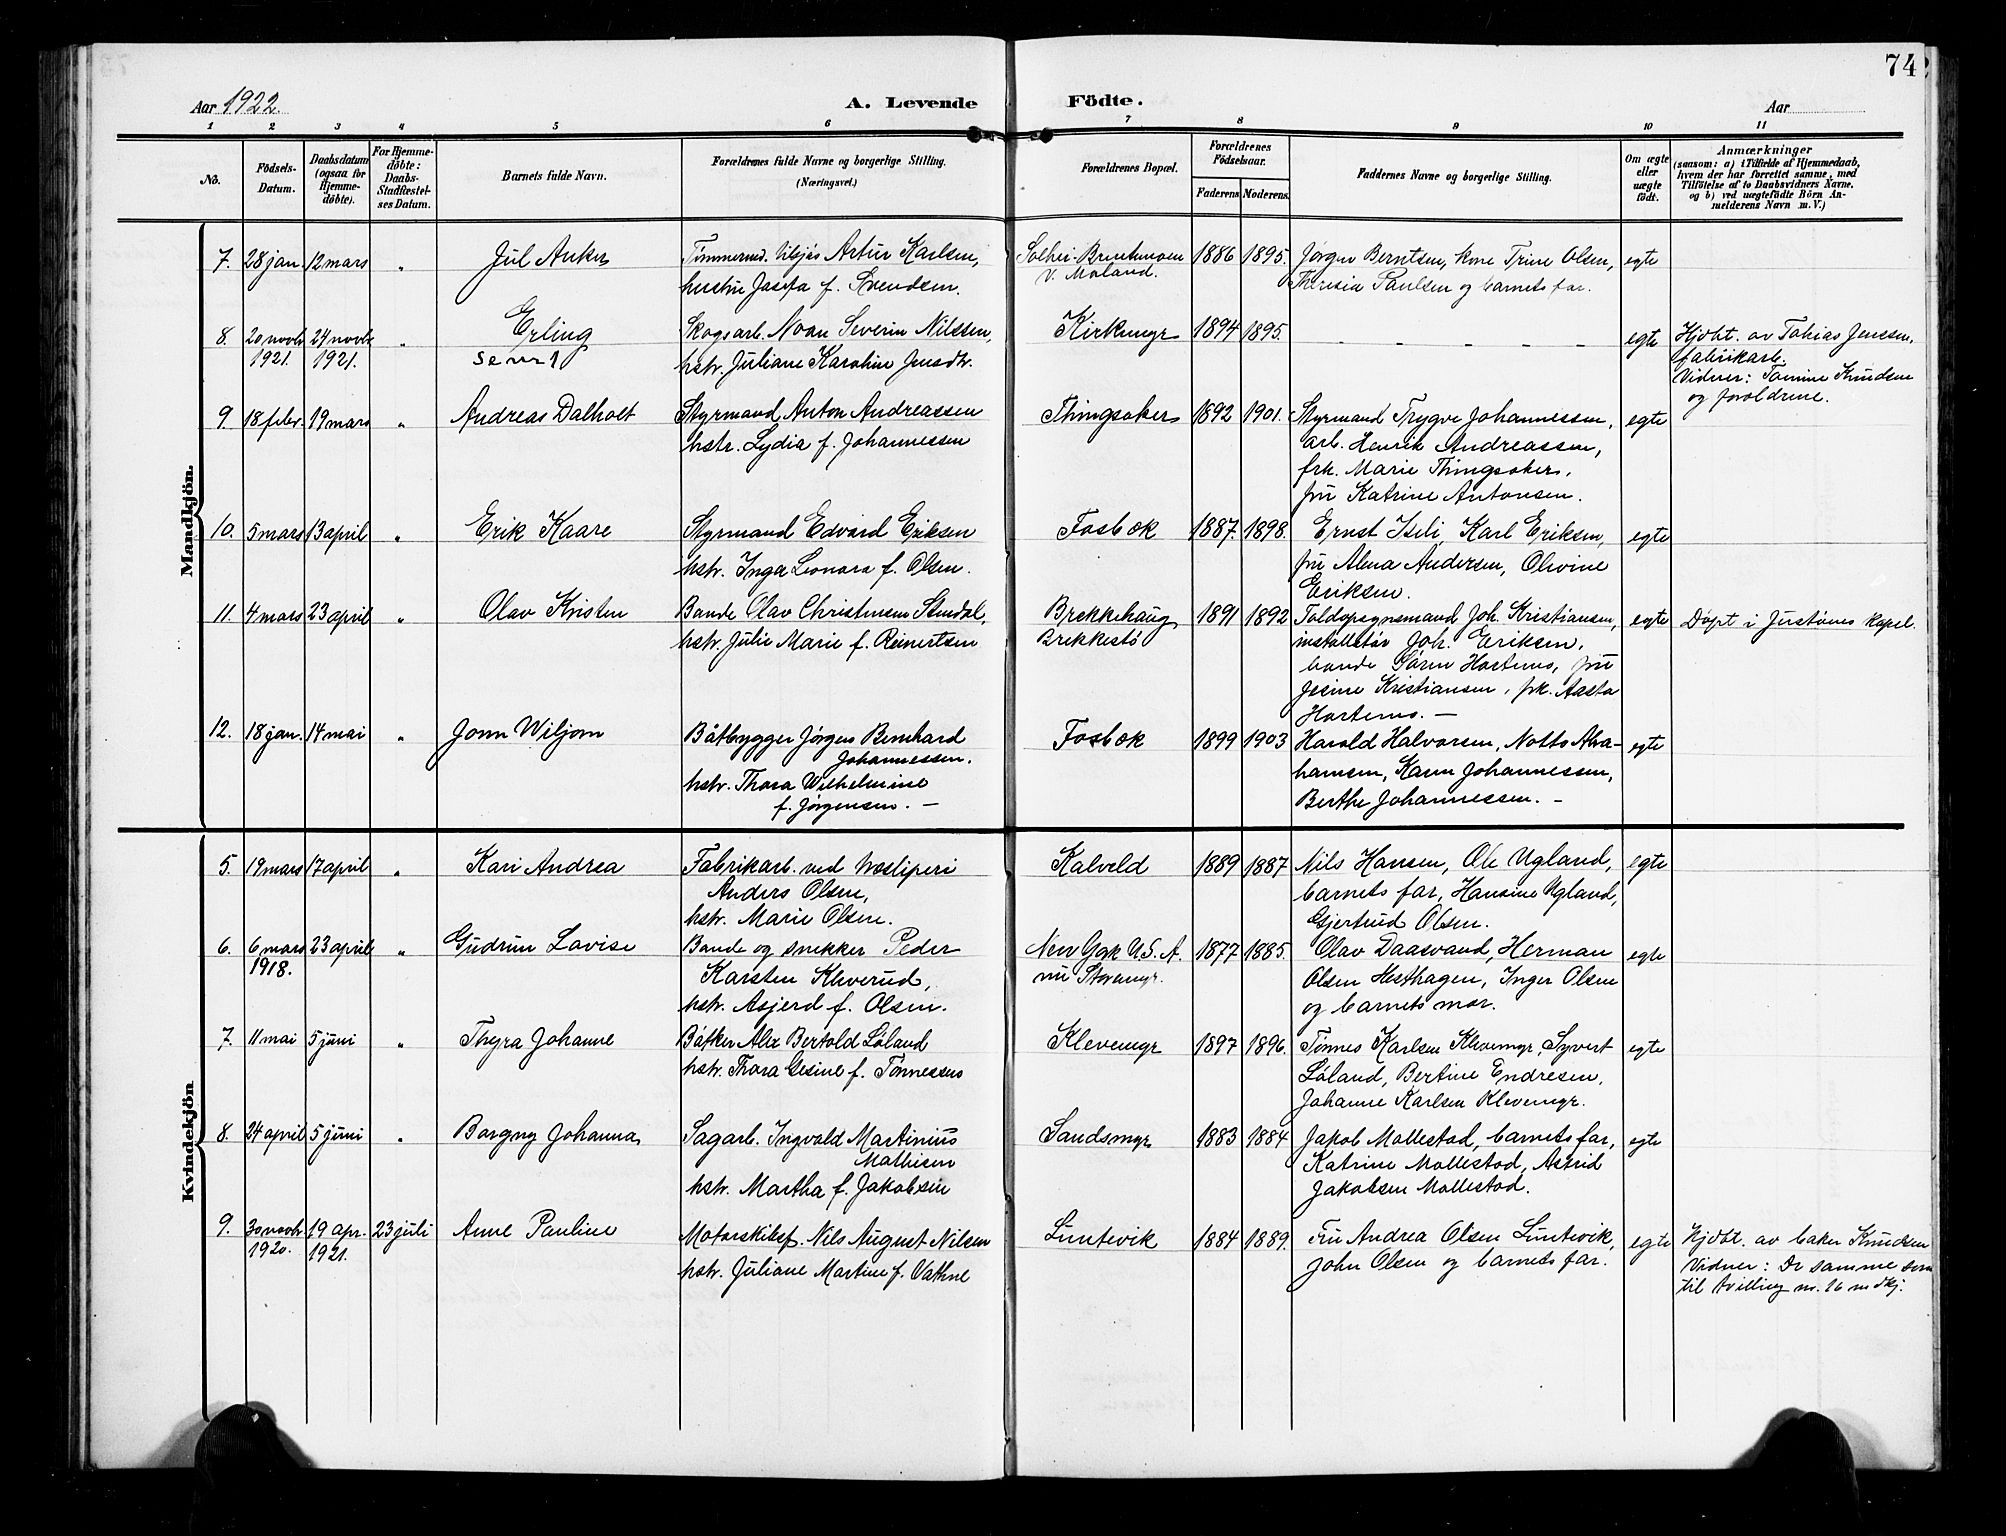 74
Aar 1922.
A. Levende Födte.
Aar
1 2 3 4 5 6 7 8 9 10 11
No.
Födsels-
Datum.
Daabsdatum
(ogsaa for
Hjemme-
døbte).
For Hjemme-
døbte:
Daabs-
Stadfæstel-
ses Datum.
Barnets fulde Navn.
Forældrenes fulde Navne og borgerlige Stilling.
(Næringsvei.)
Forældrenes Bopæl.
Forældrenes
Födselsaar.
Faderens Moderens
Faddernes Navne og borgerlige Stilling.
Om ægte
eller
uægte
født.
Anmærkninger
(saasom: a) i Tilfælde af Hjemmedaab,
hvem der har forrettet samme, med
Tilföielse af to Daabsvidners Navne.
og b) ved uægtefödte Börn An-
melderens Navn m. V.)
Mandkjön.
7. 28 jan. 12 mars " Jul Anker Artur Karlsen, 1886 1895. Jørgen Berntsen, kone Trine Olsen, egte
hustru Josefa f. Svendsen. V. Moland. Theresia Paulsen og barnets far.
8. 20 novbr 24 novbr " Erling Skogsarb. Noan Severin Nilssen, Kirkemyr 1894 1895. - - - - - egte Hjdbt. av Tobias Jenssen,
1921. 1921. hstr. Juliane Karoline Jensdtr. fabrikarb.
Vidner: Tomine Knudsen
og foreldrene.
9. 18 febr. 19 mars " Andreas Dalholt Styrmand Anton Andreassen Thingsaker 1892 1901. Styrmand Trygve Johannessen, egte
hstr. Lydia f. Johannessen arb. Henrik Andreassen,
frk. Marie Thingsaker,
fru Katrine Antonsen.
10. 5 mars 13 april " Erik Kaare Styrmand Edvard Eriksen Fosbæk 1887. 1898. Ernst Iseli, Karl Eriksen, egte
hstr. Inga Leonora f. Olsen. fru Alma Andersen, Olivine
Eriksen.
11. 4 mars 23 april " Olav Kristen Bonde Olav Christensen Stendal, Brekkehaug 1891 1892 Toldopsynsmand Joh. Kristiansen, egte Døpt i Justønes kapel.
hstr. Julie Marie f. Reinertsen Brekkestø installatør Joh. Eriksen,
bonde Søren Hortemo, fru
Jesine Kristiansen, frk. Aasta
Hortemo. —
12. 18 jan. 14 mai " John Wiljom Båtbygger Jørgen Bernhard Fosbæk 1899 1903 Harald Halvorsen, Notto Abra- egte
Johannessen. hamsen, Karen Johannessen,
hstr. Thora Wilhelmine Berthe Johannessen. —
f. Jørgensen. —
Kvindekjön
5. 19 mars 17 april " Kari Andrea Fabrikarb. ved træsliperi Kalveld 1889 1887 Nils Hansen, Ole Ugland, egte
Anders Olsen, barnets far, Hansine Ugland,
hstr. Marie Olsen. Gjertrud Olsen.
6. 6 mars 23 april " Gudrun Lovise Bonde og snekker Peder New York U.S.A. 1877 1885. Olav Daasvand, Herman egte
1918. Karsten Kleverud, nu Storemyr. Olsen Hesthagen, Inger Olsen
hstr. Asjerd f. Olsen. og barnets mor.
7. 11 mai 5 juni " Thyra Johanne Alex Bertold Løland Klevemyr 1897 1896. Tønnes Karlsen Klevemyr, Syvert egte
hstr. Thora Gesine f. Tønnessen Løland, Bertine Endresen,
Johanne Karlsen Klevemyr.
8. 24 april 5 juni " Borgny Johanna Sagarb. Ingvald Martinius Sandsmyr 1883 1884 Jakob Mollestad, barnets far, egte
Mathisen Katrine Mollestad, Astrid
hstr. Martha f. Jakobsen Jakobsen Mollestad.
9. 30 novbr 19 apr. 23 juli Anne Pauline Nils August Nilsen Luntevik 1884 1889. Fru Andrea Olsen Luntevik, egte Hjdbt. av baker Knudsen
1920. 1921. hstr. Juliane Martine f. Vathne John Olsen og barnets far. Vidner: De samme som
til tvilling nr. 16 mdkj.